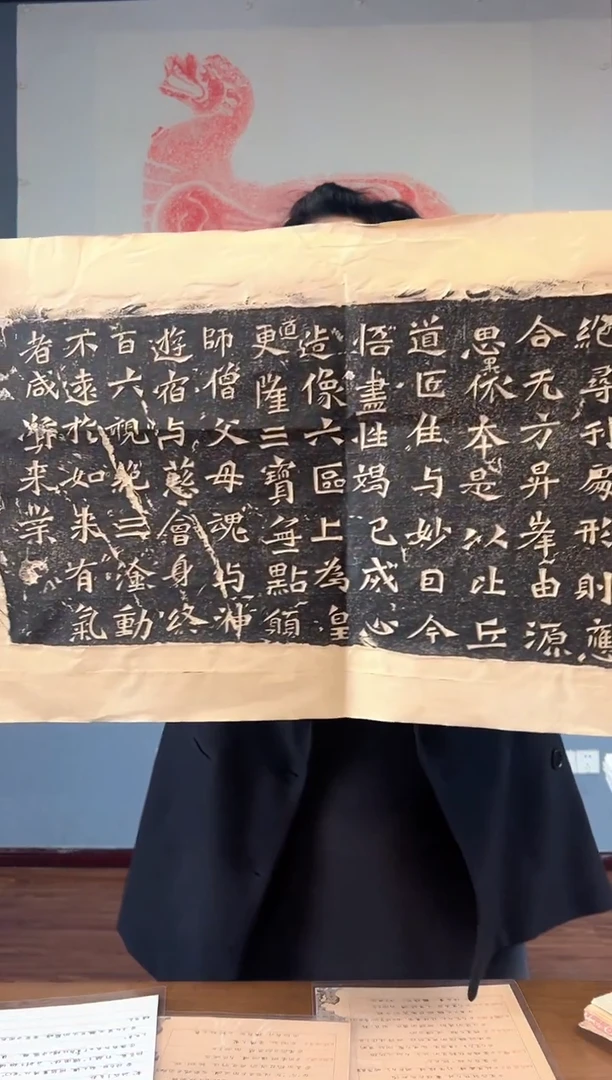 絶尋刊形則應
合无方昇峯由源
思依本是以比丘
道匠住与妙日今
悟盡性竭已成心
造像六區上為皇
道更隆三寶無點願
師僧父母魂与神
遊宿与慈會身終
百六視絶三塗動
不遠於如来有氣
者咸来業